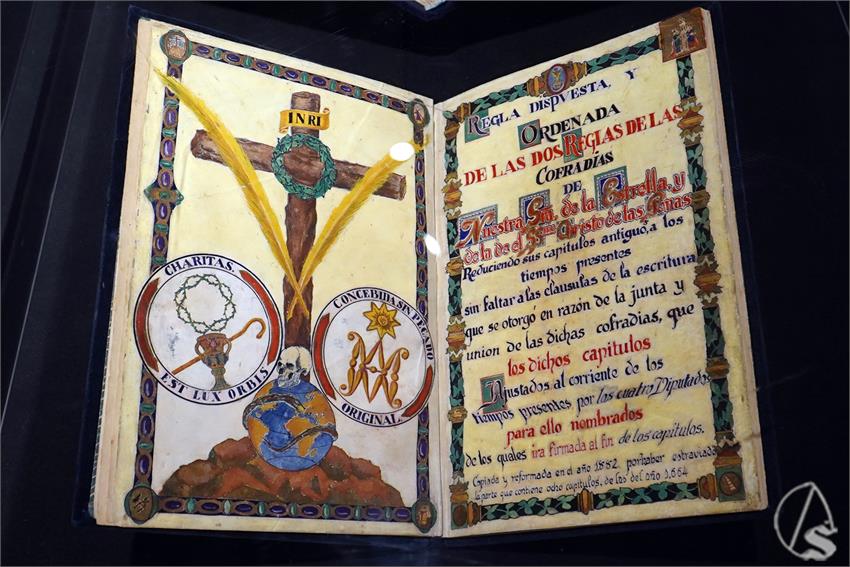 INRI
CHARITAS.
EST LUX ORBIS
CONCEBIDA SIN PECADO
ORIGINAL.
REGLA DISPVESTA, Y
ORDENADA
DE LAS DOS REGLAS DE LAS
COFRADÍAS
DE
Nuestra Sra. de la Estrella, y
de la de el Smo. Christo de las Penas
Reduciendo sus capitulos antiguo, a los
tiempos presentes
sin faltar a las clausulas de la escritura
que se otorgo en razón de la junta y
union de las dichas cofradias, que
los dichos capitulos
Ajustados al corriente de los
tiempos presentes, por los cuatro Diputados
para ello nombrados
de los quales ira firmada al fin de los capitulos.
Copiada y reformada en el año 1882 por haber estraviada
la parte que contiene ocho capitulos, de los del año 1,664